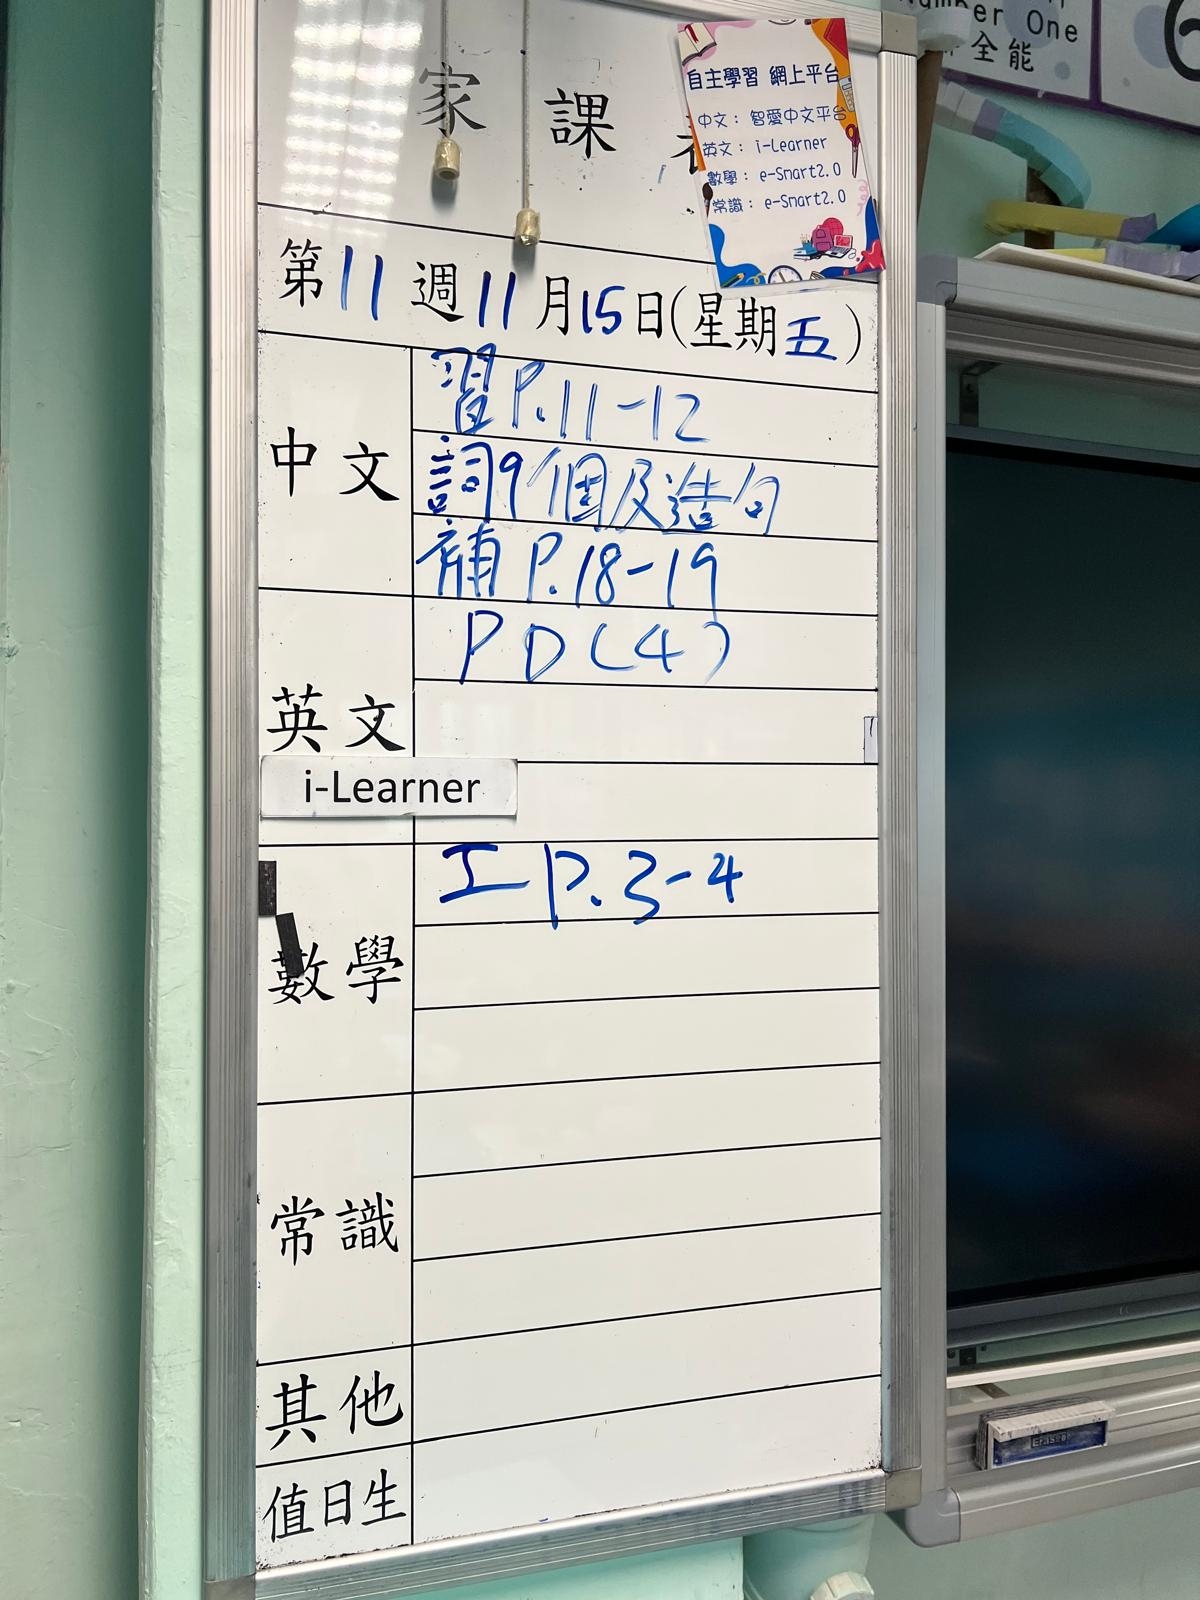 Number One
全能
家課
自主學習 網上平台
中文： 智愛中文平台
英文： i-Learner
數學： e-Smart2.0
常識： e-Smart2.0
第11週11月15日(星期五)
中文
習P.11-12
詞9個及造句
補P.18-19
英文
PD(4)
i-Learner
數學
工P.3-4
常識
其他
值日生
Eraser